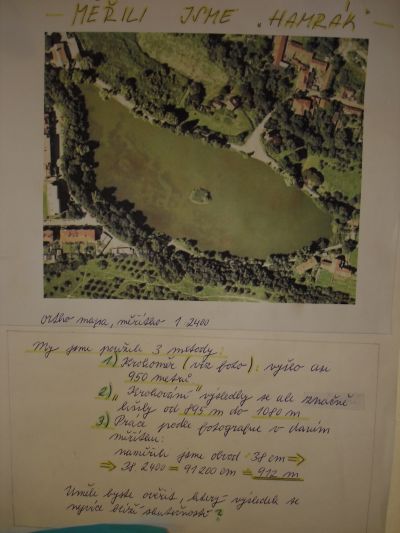 — MĚŘILI JSME „HAMRÁK" —
ortho mapa, měřítko 1:2400
My jsme použili 3 metody:
1) Krokoměr (viz foto): vyšlo cca
950 metrů
2) „Krokování" výsledky se ale značně
lišily od 895 m do 1080 m
3) Práce podle fotografie v daném
měřítku:
naměřili jsme obvod 38 cm ⇒
⇒ 38 2400 = 91 200 cm = 912 m
Uměli byste ověřit, který výsledek se
nejvíce blíží skutečnosti?